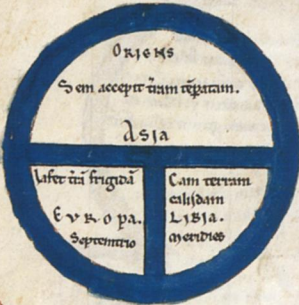 ORIENS
Sem accepit t̄ram tēperatam.
ASIA
Iafet t̄rā frigidā
EVROPA.
Septemtrio
Cam terram
calidam
LIBIA.
meridies